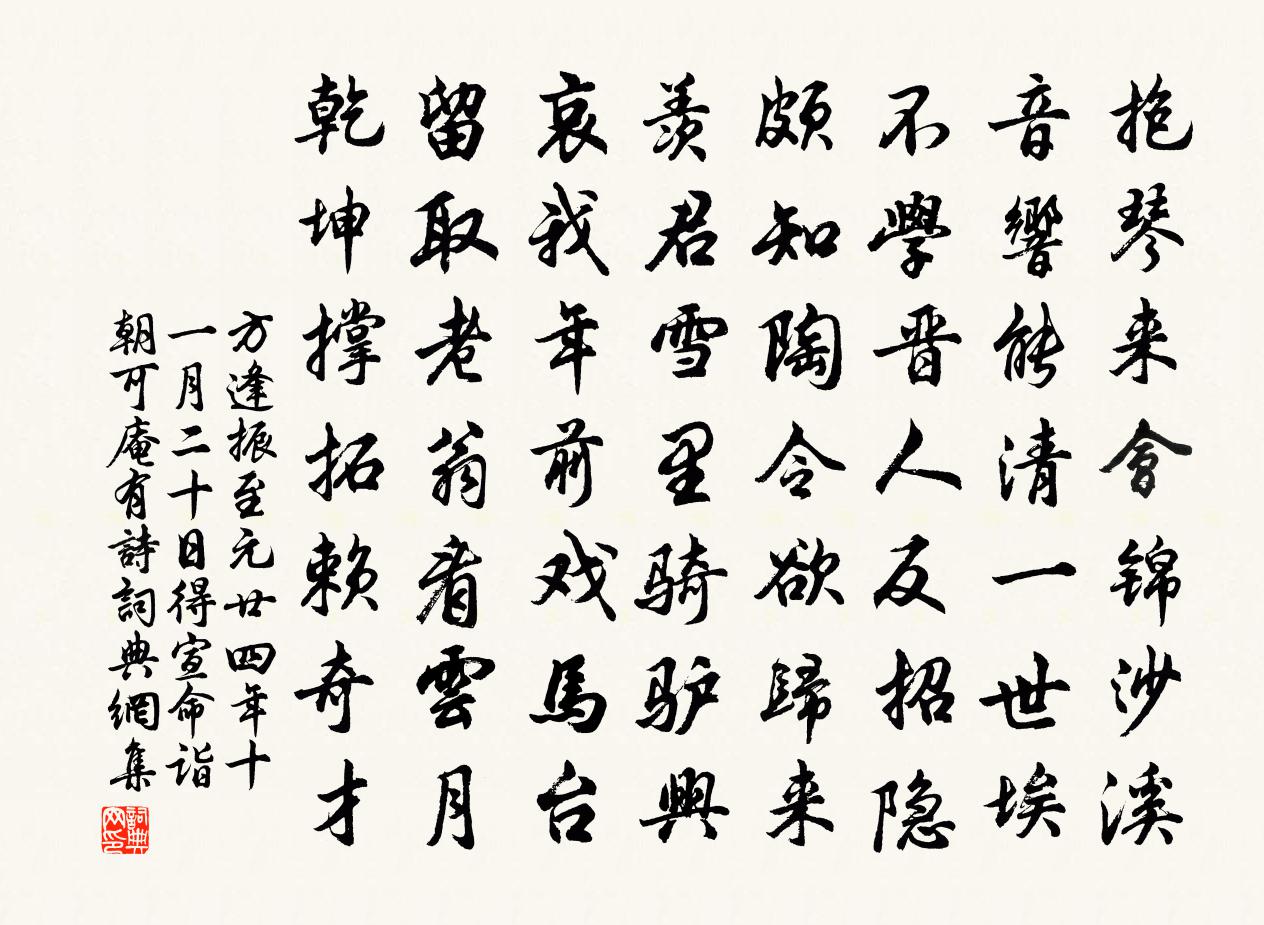 抱琴来會锦沙溪
音響能清一世埃
不學晋人反招隐
頗知陶令欲歸来
羡君雪里骑驴興
哀我年前戏馬台
留取老翁看雲月
乾坤撑拓赖奇才
方逢振至元廿四年十
一月二十日得宣命诣
朝可庵有詩詞典網集
詞典网印